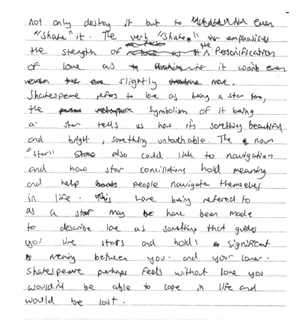 not only destroy it but to even
"shake" it. The verb "shake" emphasises
the strength of as the personification
of love as it won't even
slightly move.
Shakespeare refers to love as being a star too,
the symbolism of it being
a star tells us how its something beautiful
and bright, something untouchable. The noun
"star" also could link to navigation
and how star consilitions hold meaning
and help people navigate themselves
in life. Love being refered to
as a star may have been made
to describe love as something that guides
you like stars and holds significant
meaning between you and your lover.
Shakespeare perhaps feels without love you
wouldn't be able to cope in life and
would be lost.